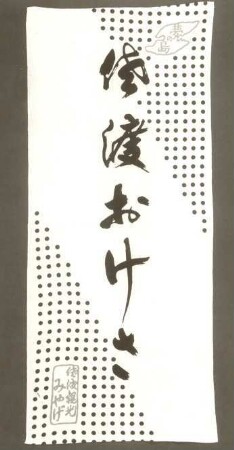 佐渡おけさ
佐渡観光
みやげ